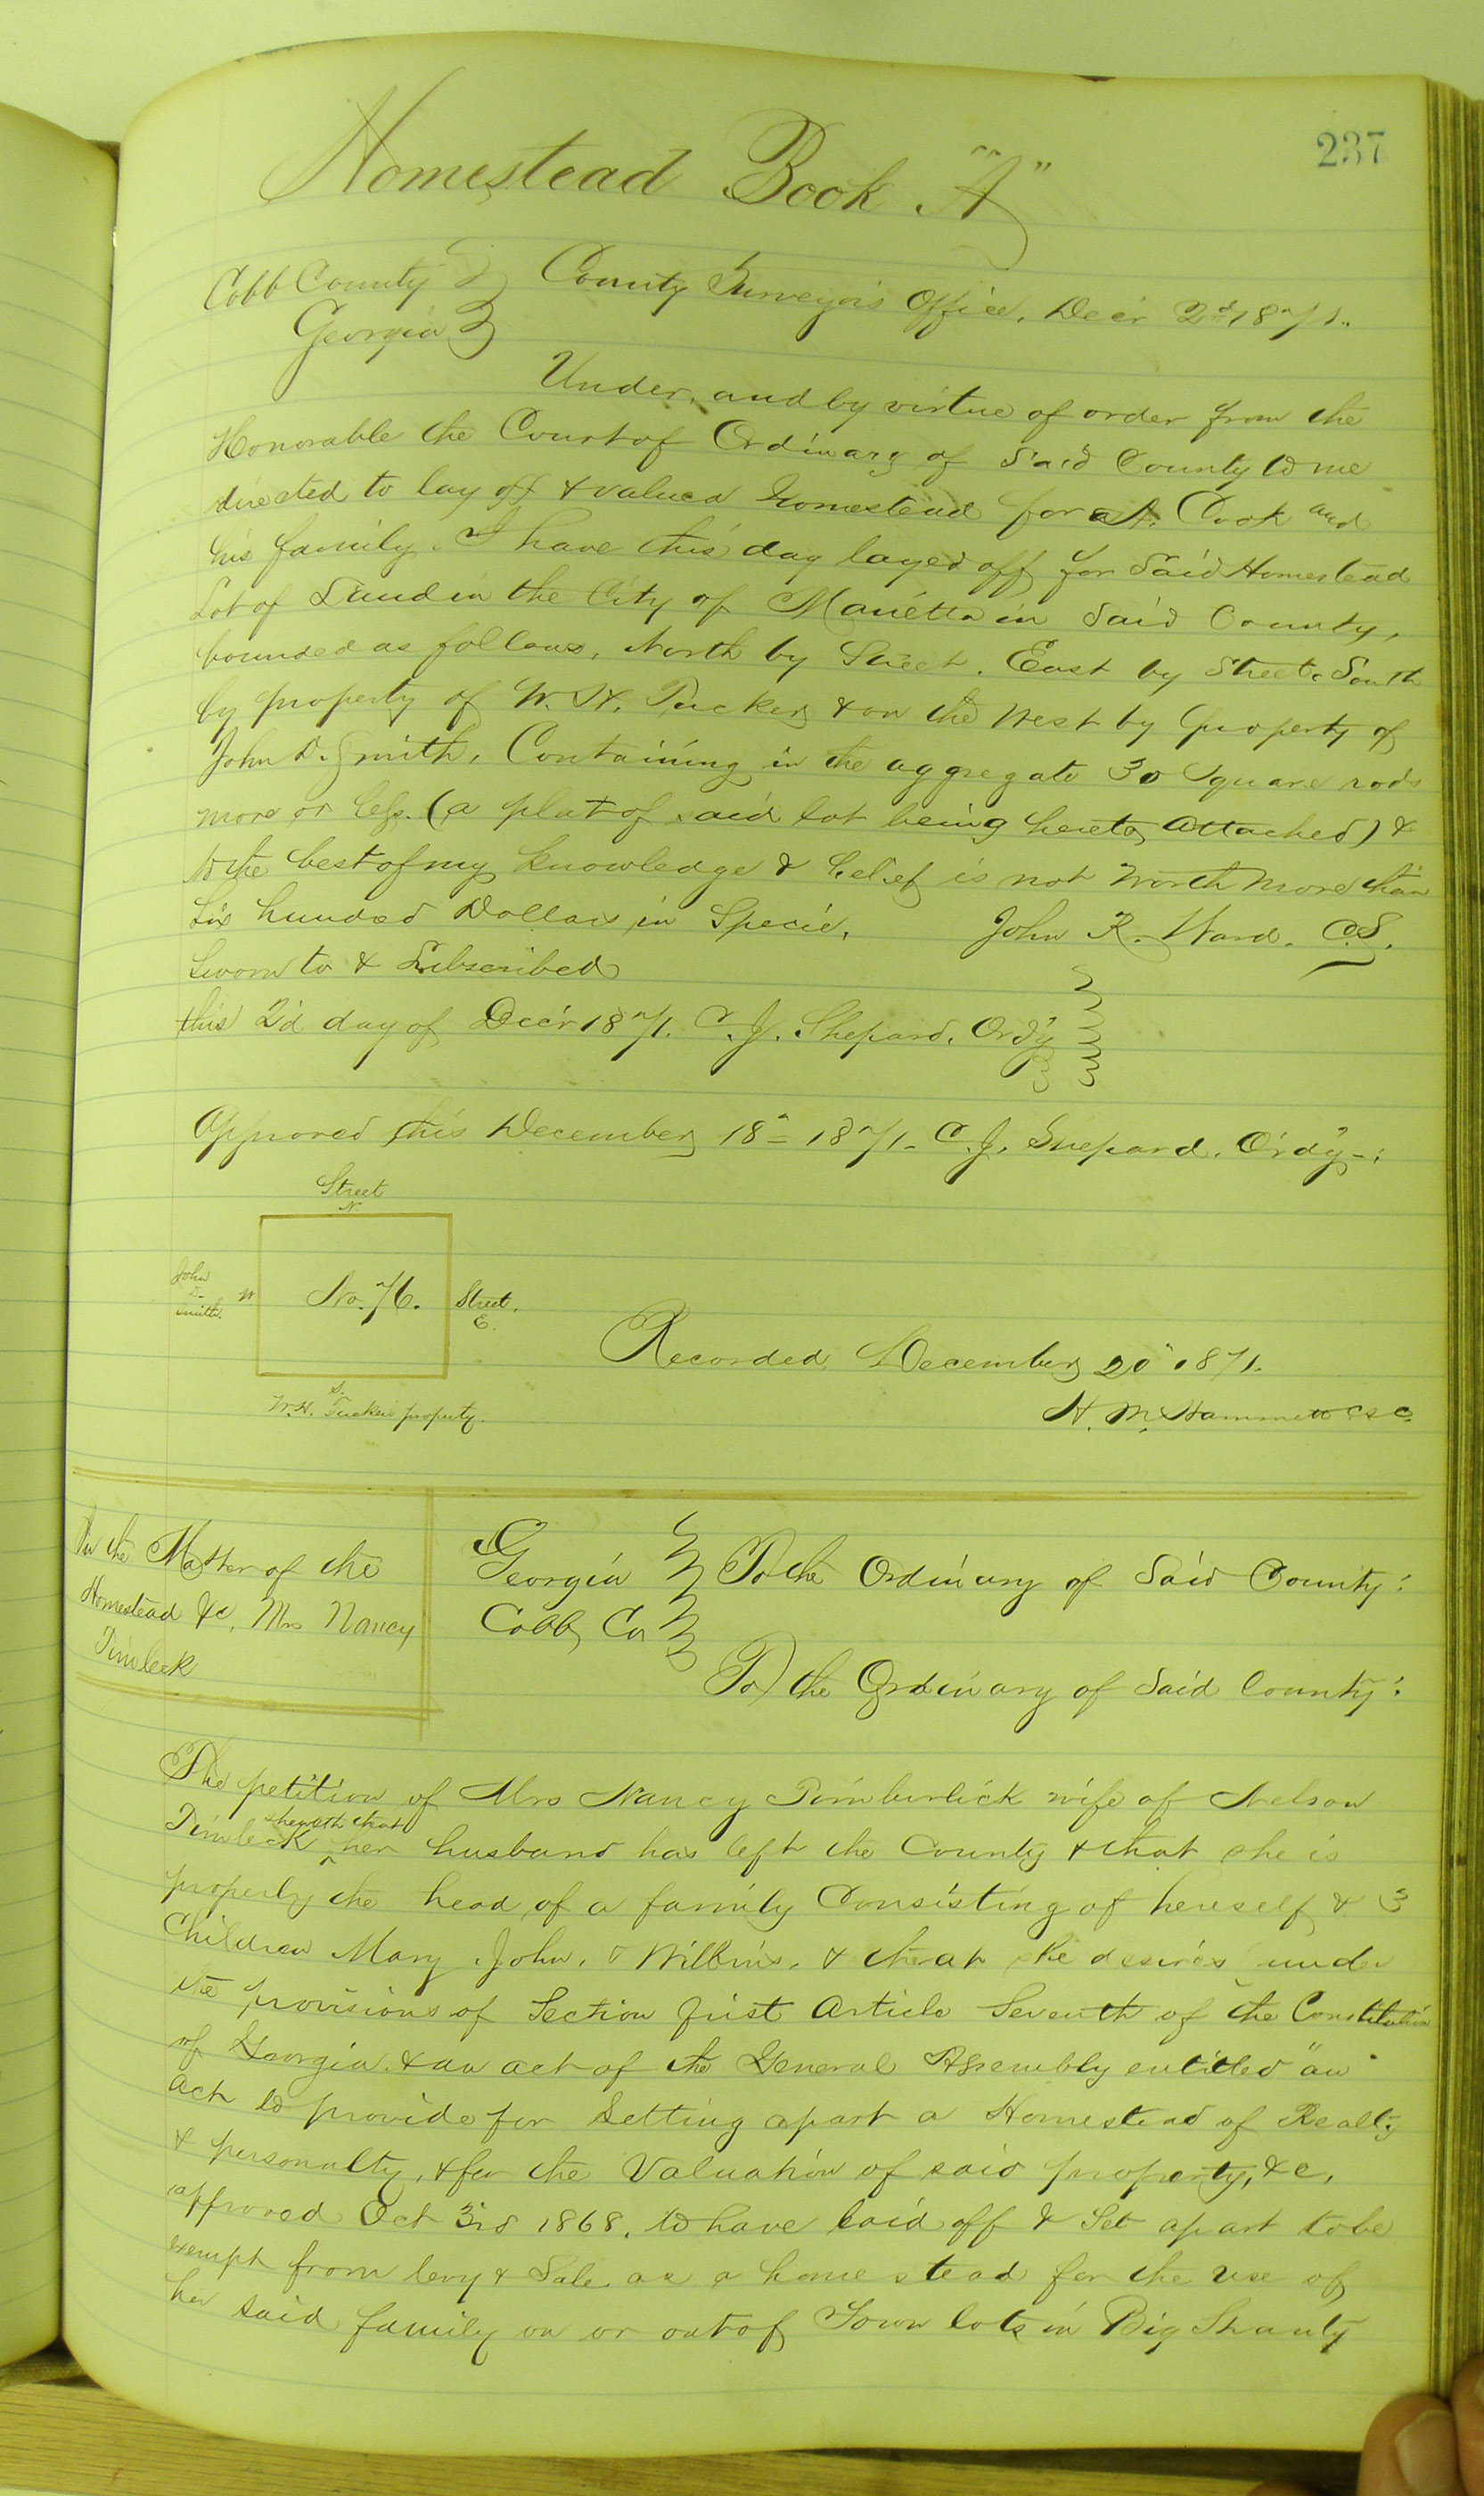 237
Homestead Book "A"
Cobb County } County Surveyors Office, Decr 2d 1871.
Georgia }
Under, and by virtue of order from the
Honorable the Court of Ordinary of Said County to me
directed to lay off & valued Homestead for A. Cook and
his family. I have this day layed off for Said Homestead
Lot of Land in the City of Marietta in Said County,
bounded as follows, North by Street. East by Street. South
by property of W. H. Tucker & on the West by property of
John D. Smith, Containing in the aggregate 30 Square rods
more or less. (a plat of said lot being hereto attached) &
to the best of my knowledge & belief is not worth more than
Six hundred Dollars in Specie, John R. Ward. C.S.
Sworn to & Subscribed
this 2'd day of Decr 1871. C. J. Shepard, Ordy
Approved this December 18th 1871. C. J. Shepard. Ord'y-:
Street
N
John
D.
Smith. W No. 76. Street,
E.
S.
W.H. Tucker property.
Recorded December 20" 1871.
H. M. Hammett CSC
In the Matter of the
Homestead &c, Mrs Nancy
Timleck
Georgia } To the Ordinary of Said County:
Cobb Co }
To the Ordinary of Said County:
The petition of Mrs Nancy Timburlick wife of Nelson
Timleck sheweth that her husband has left the County & that she is
properly the head of a family Consisting of herself & 3
Children Mary, John, & Wilbins, & that she desires under
the provisions of Section first Article Seventh of the Constitution
of Georgia & an act of the General Assembly entitled "an
act to provide for Setting apart a Homestead of Realty
& personalty, & for the Valuation of said property, &c,
approved Oct 3rd 1868, to have laid off & Set apart to be
exempt from levy & Sale as a home stead for the use of
her said family on or out of Town lots in Big Shanty